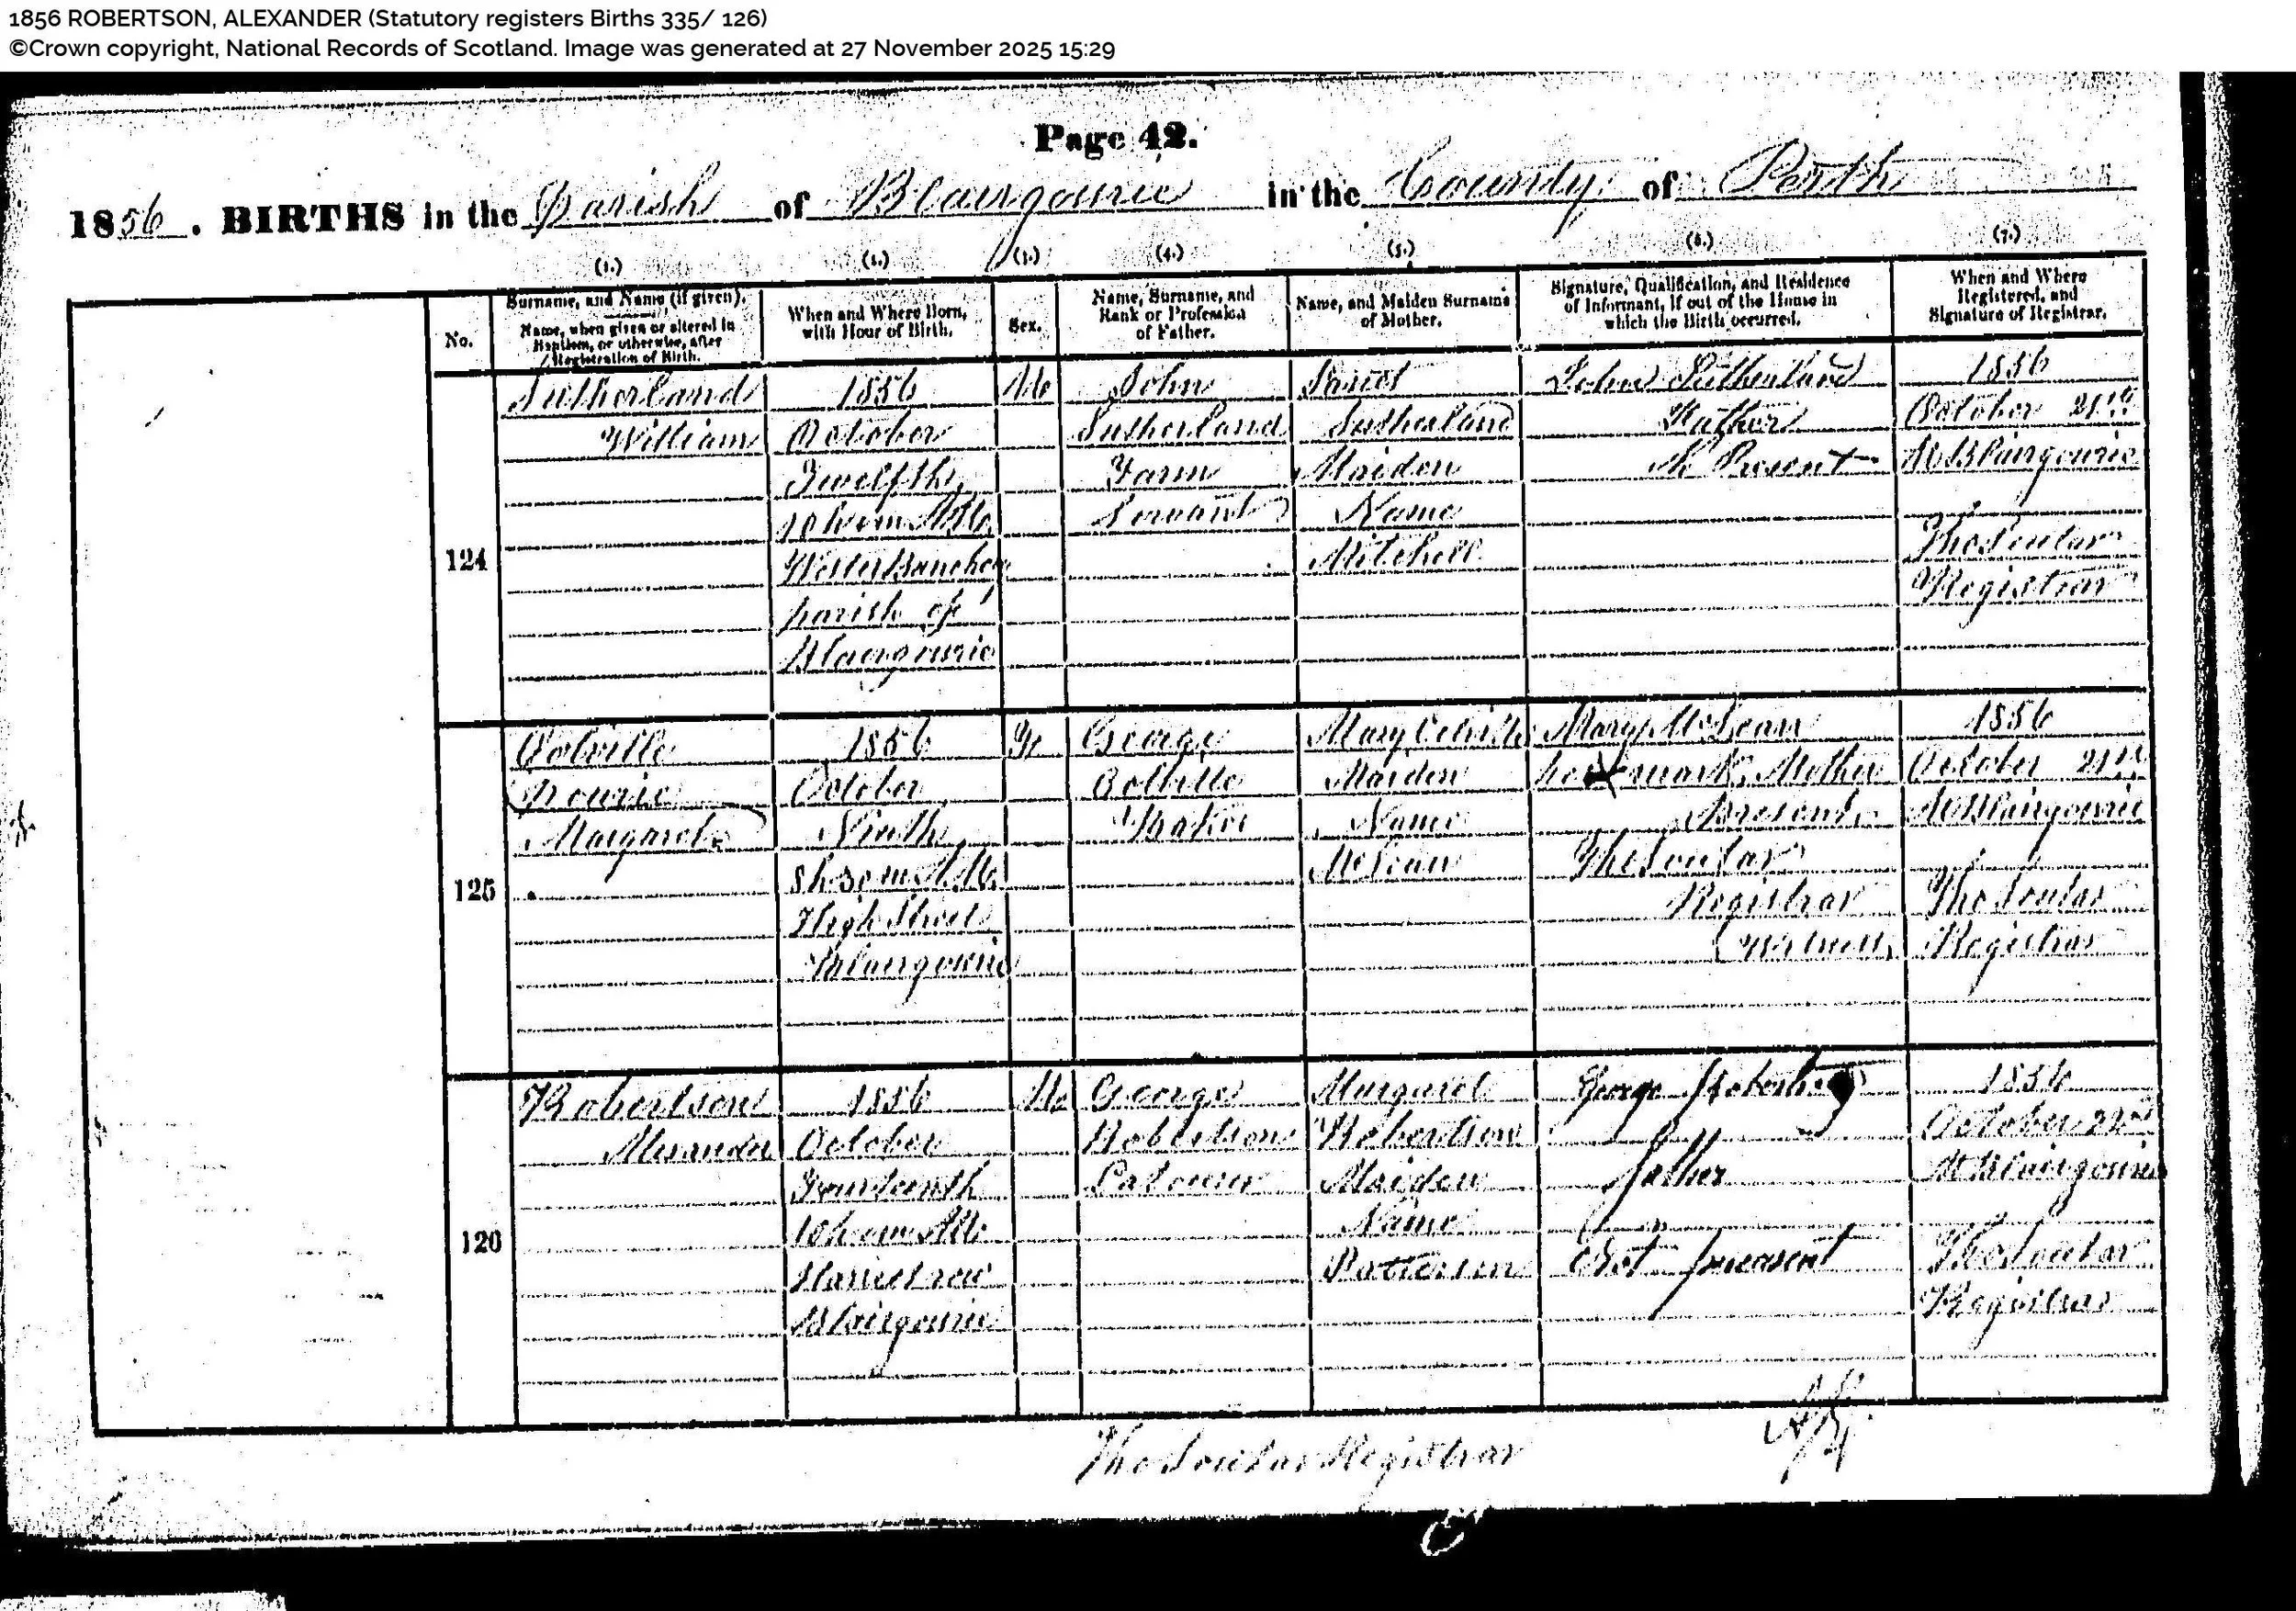 1856 ROBERTSON, ALEXANDER (Statutory registers Births 335/ 126)
©Crown copyright, National Records of Scotland. Image was generated at 27 November 2025 15:29
Page 42.
1856. BIRTHS in the Parish of Blairgowrie in the County of Perth
(1.) (2.) (3.) (4.) (5.) (6.) (7.)
No.
Surname, and Name (if given).
Name, when given or altered in
Baptism, or otherwise, after
Registration of Birth.
When and Where Born,
with Hour of Birth.
Sex.
Name, Surname, and
Rank or Profession
of Father.
Name, and Maiden Surname
of Mother.
Signature, Qualification, and Residence
of Informant, if out of the House in
which the Birth occurred.
When and Where
Registered, and
Signature of Registrar.
124
Sutherland
William
1856
October
Twelfth
parish of
Blairgowrie
M
John
Sutherland
Farm
Servant
Janet
Sutherland
Maiden
Name
Mitchell
John Sutherland
Father
Present
1856
October 21st
At Blairgowrie
Thos Soutar
Registrar
125
Colville
Margaret
1856
October
Ninth
High Street
Blairgowrie
F
George
Colville
Baker
Mary Colville
Maiden
Name
McLean
Mary McLean
her X mark Mother
Present
Thos Soutar
Registrar
(Witness)
1856
October 21st
At Blairgowrie
Thos Soutar
Registrar
126
Robertson
Alexander
1856
October
Fourteenth
Blairgowrie
M
George
Robertson
Labourer
Margaret
Robertson
Maiden
Name
Patterson
George Robertson
father
Not
1856
October 22nd
At Blairgowrie
Thos Soutar
Registrar
Thos Soutar Registrar